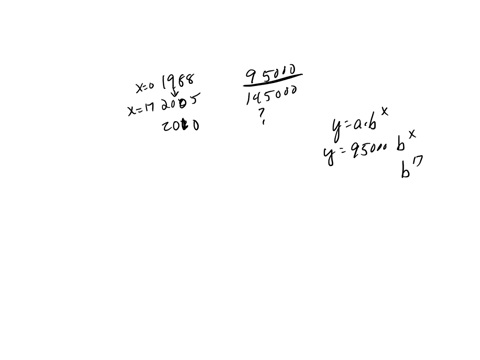 x=0 1988 95000
x=17 2005 145000
2010 ?
y=a·b^x
y=95000 b^x
b^17